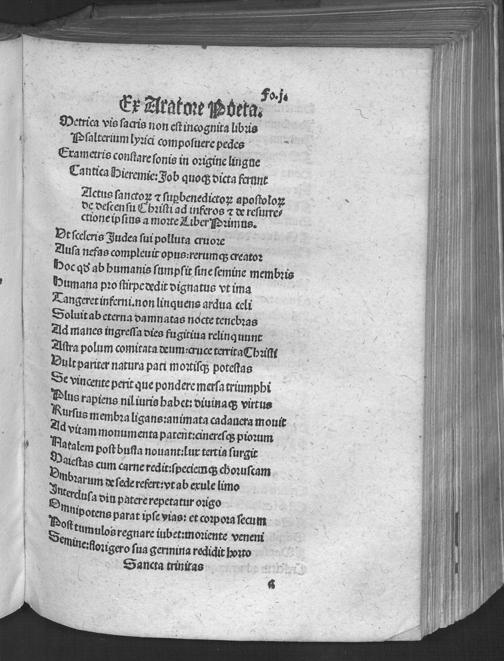 Fo.j.
Ex Aratore Poeta.
Metrica vis sacris non est incognita libris
Psalterium lyrici composuere pedes
Exametris constare sonis in origine lingue
Cantica Hieremie: Job quoqꝫ dicta ferunt
Actus sanctoꝝ ⁊ suꝑbenedictoꝝ apostoloꝝ
de descensu Christi ad inferos ⁊ de resurre-
ctione ipsius a morte Liber Primus.
Vt sceleris Judea sui polluta cruore
Ausa nefas complevit opus: rerumqꝫ creator
Hoc qd̛ ab humanis sumpsit sine semine membris
Humana pro stirpe dedit dignatus vt ima
Tangeret inferni. non linquens ardua celi
Soluit ab eterna damnatas nocte tenebras
Ad manes ingressa dies fugitiua relinquunt
Astra polum comitata deum: cruce territa Christi
Vult pariter natura pati mortisqꝫ potestas
Se vincente perit que pondere mersa triumphi
Plus rapiens nil iuris habet: diuinaqꝫ virtus
Rursus membra ligans: animata cadauera mouit
Ad vitam monumenta patent: cineresqꝫ piorum
Natalem post busta nouant: lux tertia surgit
Maiestas cum carne redit: speciemqꝫ choruscam
Vmbrarum de sede refert: vt ab exule limo
Interclusa diu patere repetatur origo
Omnipotens parat ipse vias: et corpora secum
Post tumulos regnare iubet: moriente veneni
Semine: florigero sua germina redidit horto
Sancta trinitas